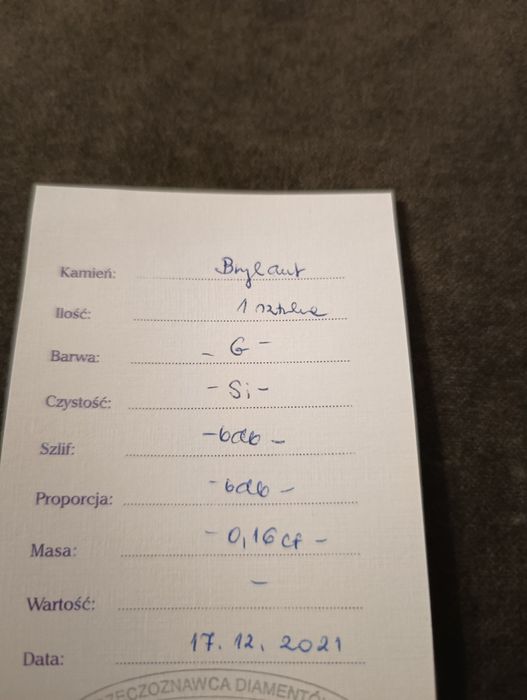 Kamień: Brylant
Ilość: 1 sztuka
Barwa: - G -
Czystość: - Si -
Szlif: - bdb -
Proporcja: - bdb -
Masa: - 0,16 ct -
Wartość: -
Data: 17. 12. 2021
RZECZOZNAWCA DIAMENTÓW